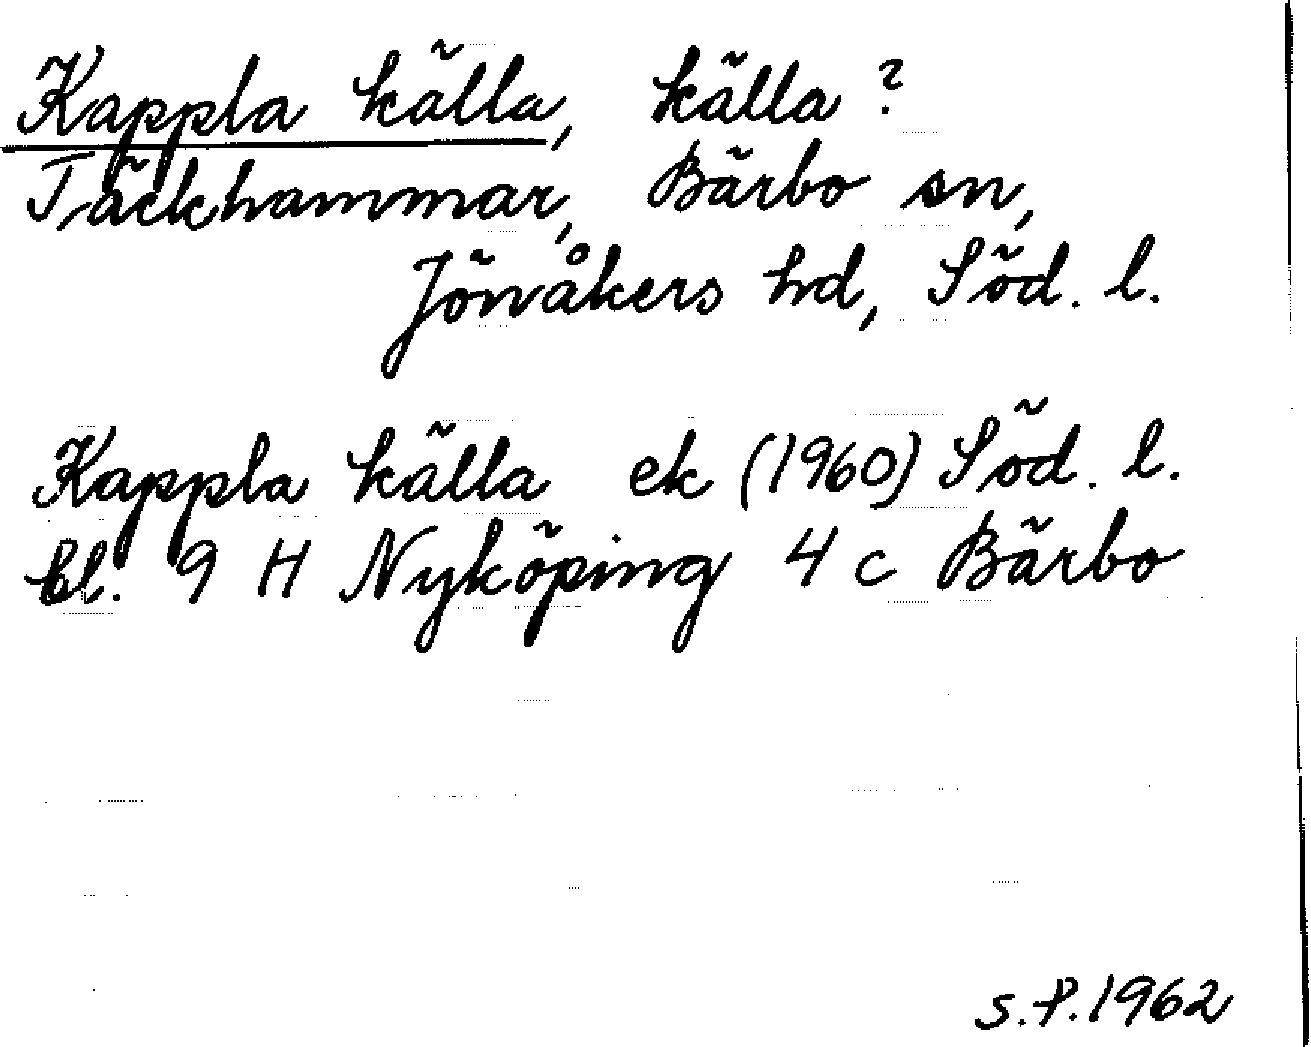 Kappla källa, källa?
Täckhammar, Bärbo sn,
Jönåkers hd, Söd. l.
Kappla källa ek (1960) Söd. l.
bl. 9 H Nyköping 4 c Bärbo
S.P. 1962